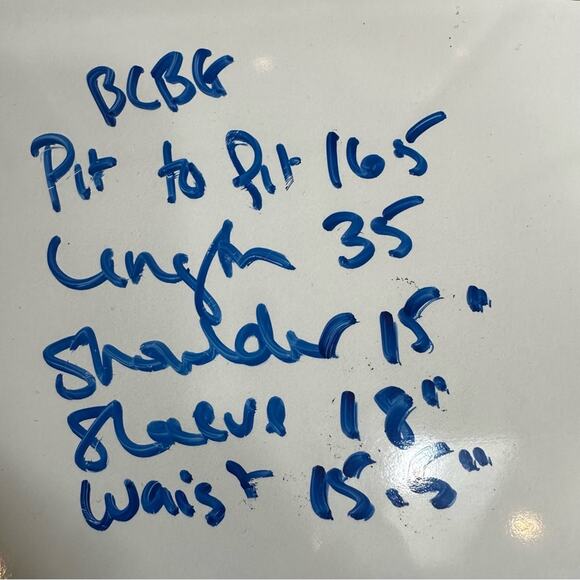 BCBG
Pit to Pit 16.5
Length 35
Shoulder 15"
Sleeve 18"
Waist 15.5"